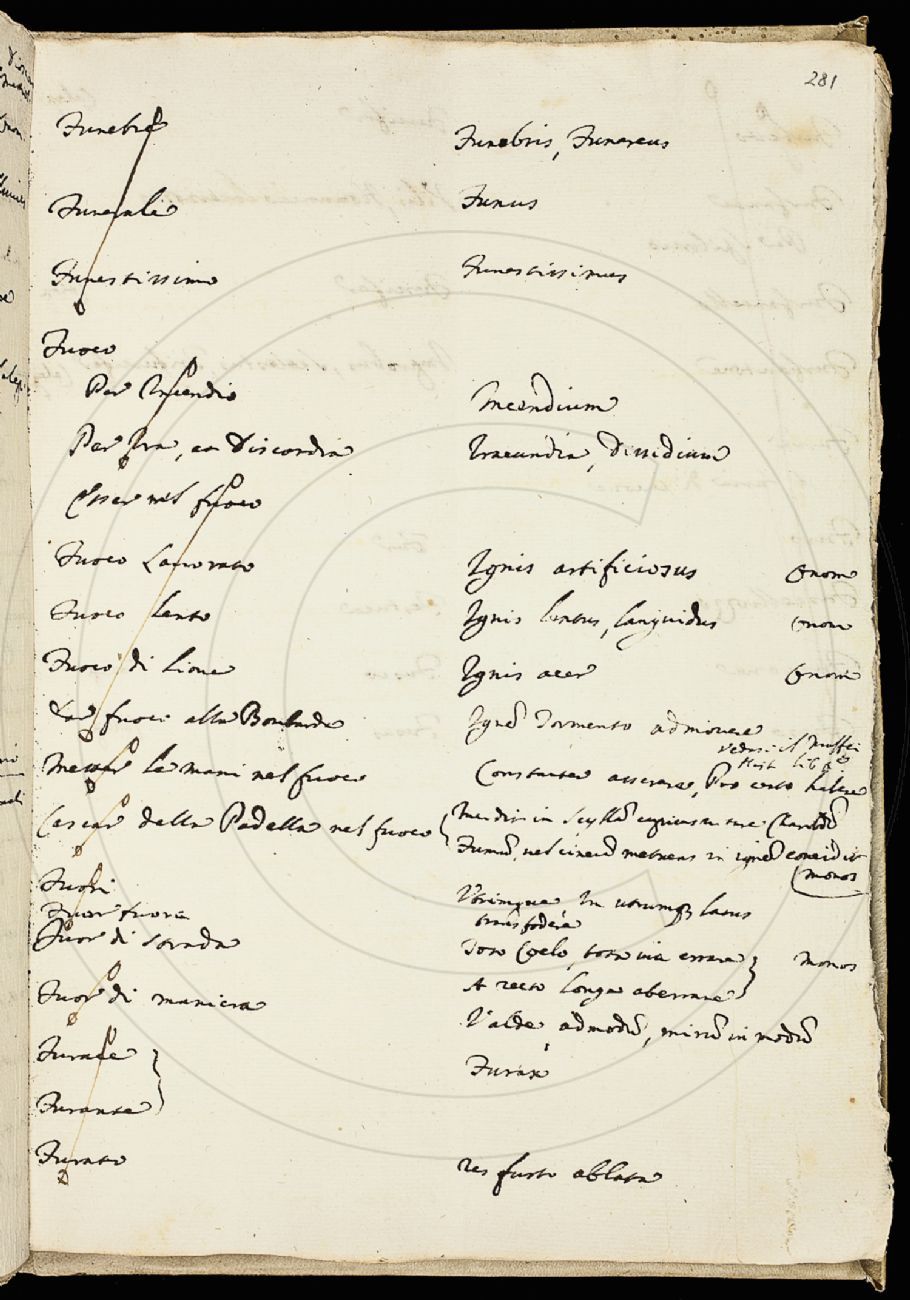 281
Funebre Funebris, Funereus
Funerale Funus
Funestissimo Funestissimus
Fuoco
Per Incendio Incendium
Per Ira, ea Discordia Iracundia, Dissidium
Esser nel fuoco
Fuoco Lavorato Ignis artificiosus Onom
Fuoco lento Ignis lentus, languidus Onom
Fuoco di Lione Ignis acer Onom
Dar fuoco alla Bombarda Igne Tormento admovere
vedesi il Maffei
Hist lib 6
Metter le mani nel fuoco Constanter asserere, Pro certo habere
Cascar dalla Padella nel fuoco in Scyllã cupiens Charibdĩ
Fumũ, vel cinerẽ metuens in ignẽ concidit
Monos
Fuori
Fuor fuora Utrimque In utrumq latus
transfodere
Fuor di strada Toto Coelo, tota via errare Monos
A recto longe aberrare
Fuor di maniera Valde, admodũ, mirũ in modũ
Furace Furax
Furante
Furato res furto ablata